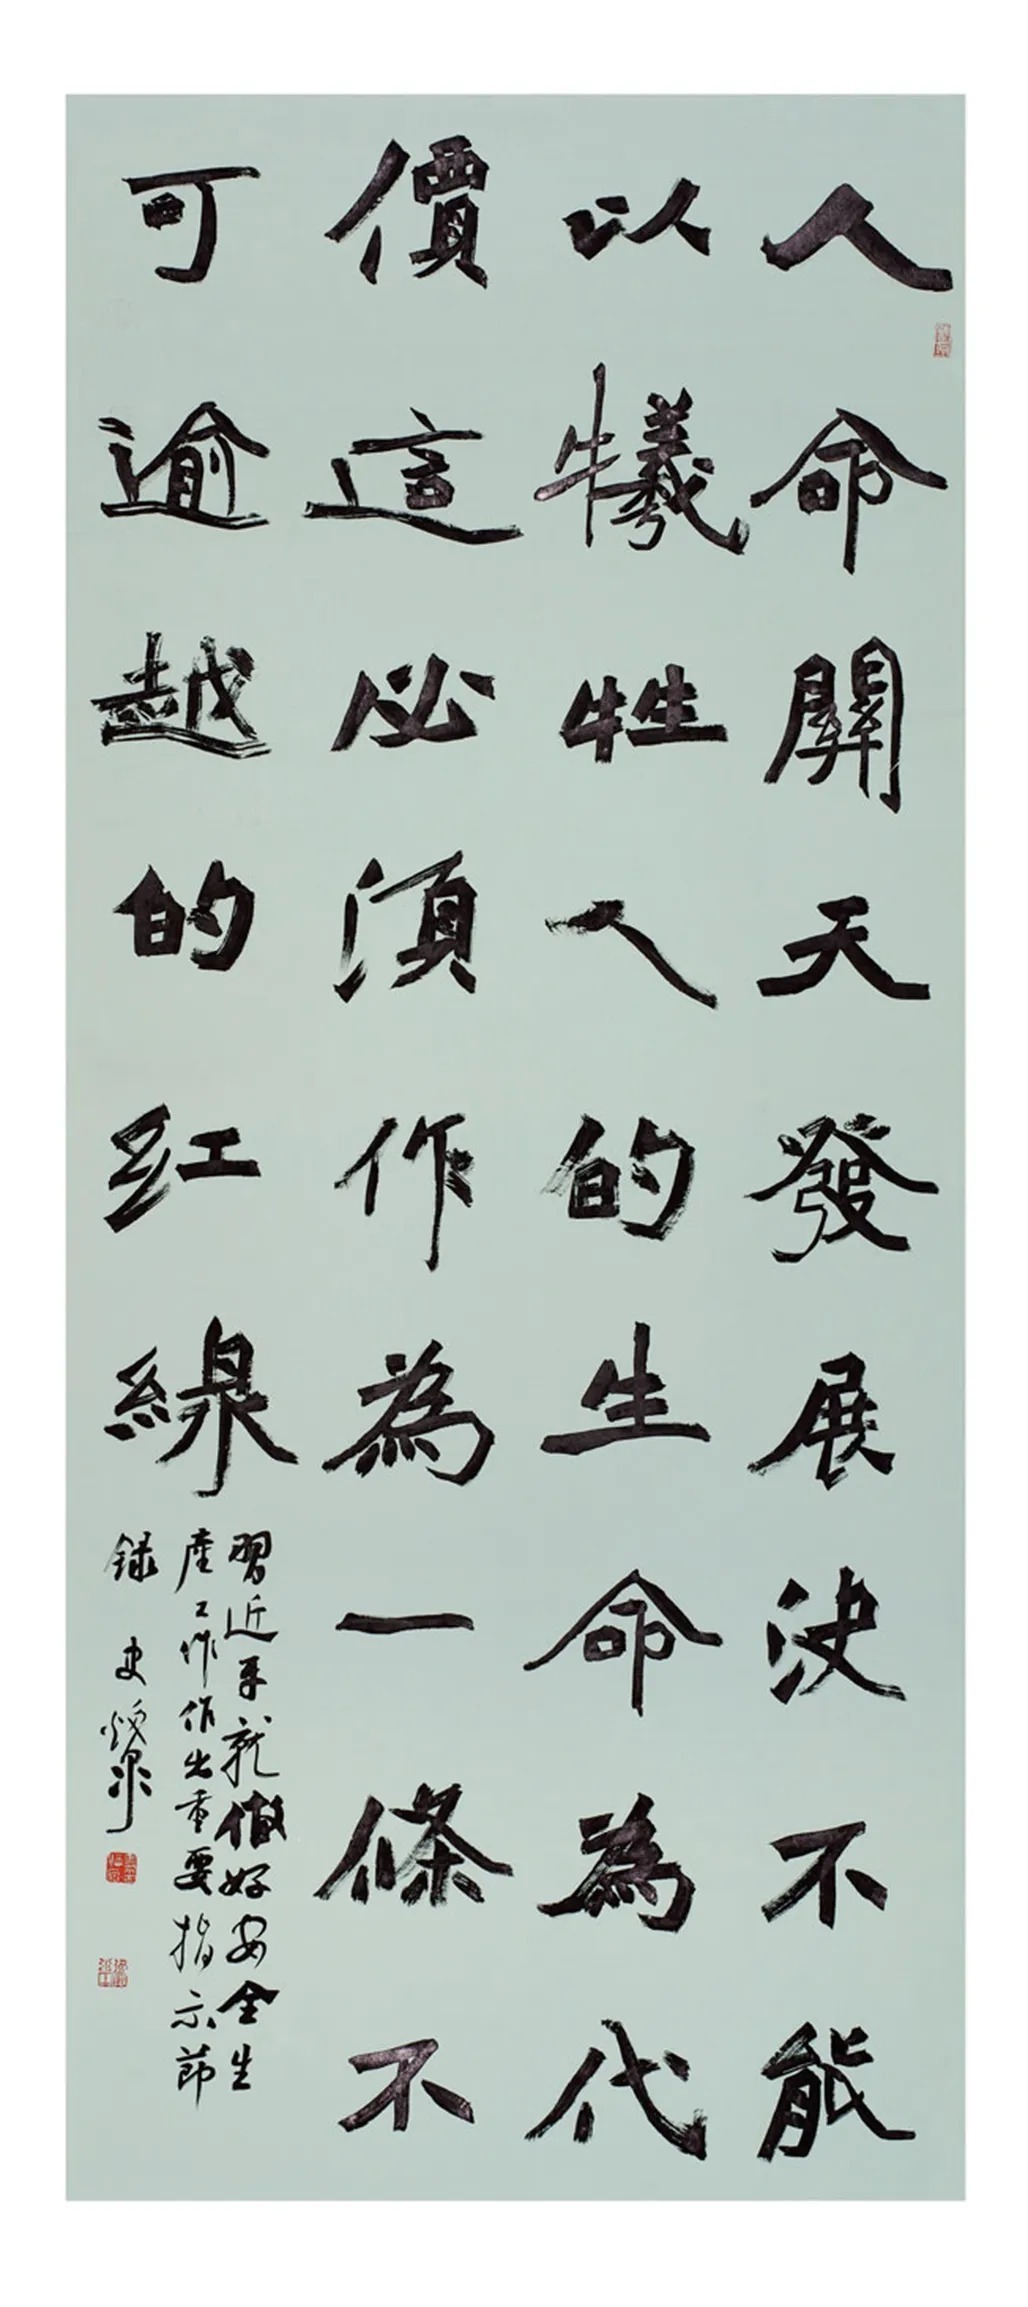 人命關天發展決不能
以犧牲人的生命為代
價這必須作為一條不
可逾越的紅線
習近平就做好安全生
產工作作出重要指示節
録 史焕泉